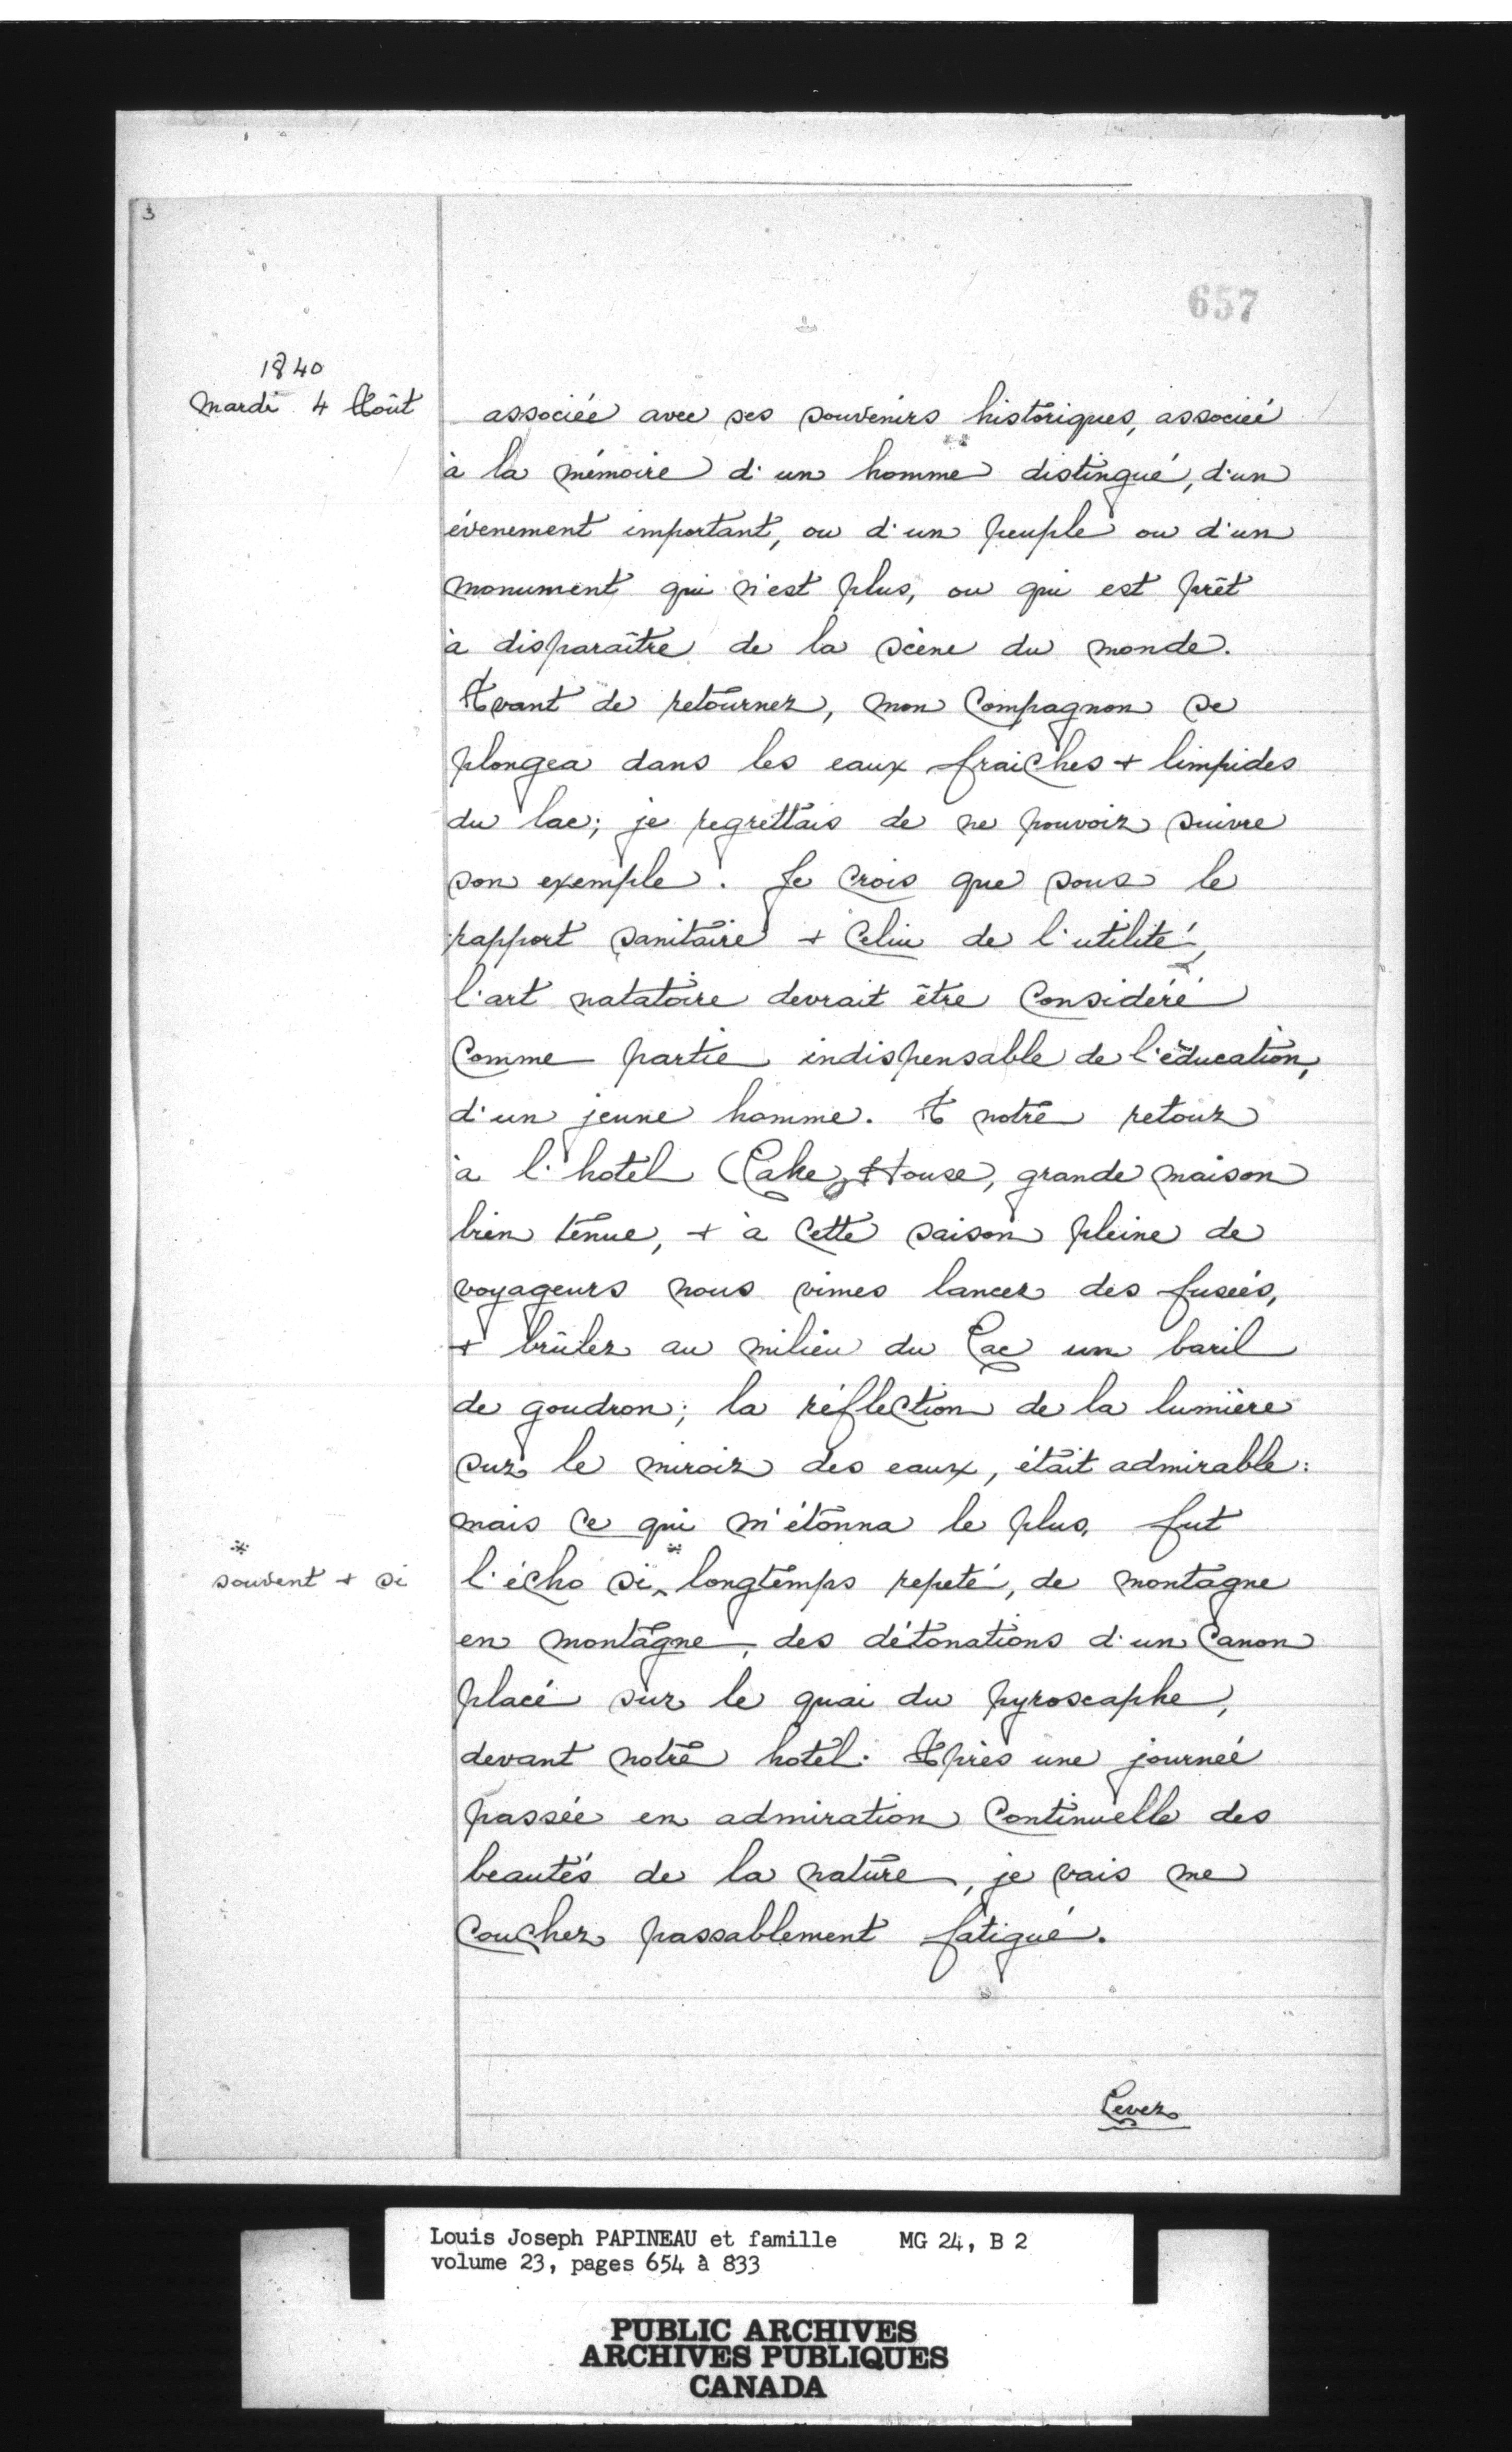 3
657
1840
Mardi 4 Août
associée avec ses souvenirs historiques, associée
à la mémoire d'un homme distingué, d'un
évenement important, ou d'un peuple ou d'un
monument qui n'est plus, ou qui est prêt
à disparaître de la scène du monde.
Avant de retourner, mon Compagnon se
plongea dans les eaux fraiches + limpides
du lac; je regrettais de ne pouvoir suivre
son exemple. Je Crois que sous le
rapport sanitaire + Celui de l'utilité,
l'art natatoire devrait être Considéré
Comme partie indispensable de l'éducation,
d'un jeune homme. A notre retour
à l'hotel (Lake House, grande maison
bien tenue, + à Cette saison pleine de
voyageurs nous vimes lancer des fusées,
+ brûler au milieu du Lac un baril
de goudron; la réflection de la lumière
sur le miroir des eaux, était admirable:
mais Ce qui m'étonna le plus, fut
*
souvent + si
l'écho si ^* longtemps repeté, de montagne
en montagne, des détonations d'un Canon
placé sur le quai du pyroscaphe,
devant notre hotel. Après une journée
passée en admiration Continuelle des
beautés de la nature, je vais me
Coucher passablement fatigué.
Lever
Louis Joseph PAPINEAU et famille MG 24, B 2
volume 23, pages 654 à 833
PUBLIC ARCHIVES
ARCHIVES PUBLIQUES
CANADA